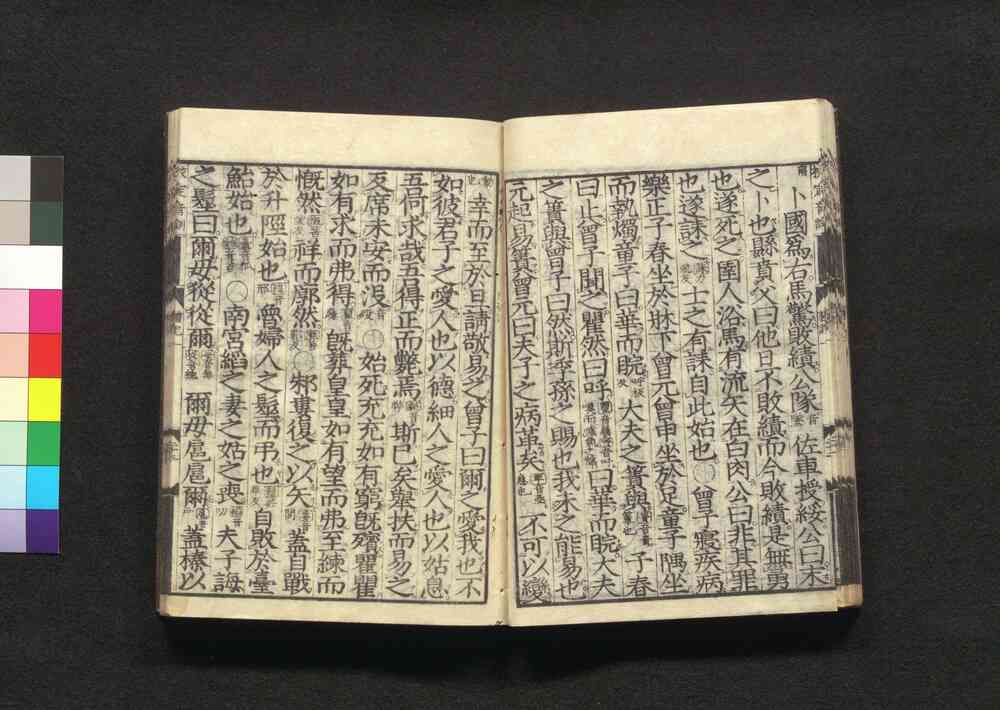 卜國爲右馬驚敗績公隊佐車授綏公曰末
之卜也縣賁父曰他日不敗績而今敗績是無勇
也遂死之圉人浴馬有流矢在白肉公曰非其罪
也遂誄之士之有誄自此始也曾子寢疾病
樂正子春坐於牀下曾元曾申坐於足童子隅坐
而執燭童子曰華而睆大夫之簀與子春
曰止曾子聞之瞿然曰呼曰華而睆大夫
之簀與曾子曰然斯季孫之賜也我未之能易也
元起易簀曾元曰夫子之病革矣不可以變
幸而至於旦請敬易之曾子曰爾之愛我也不
如彼君子之愛人也以德細人之愛人也以姑息
吾何求哉吾得正而斃焉斯已矣舉扶而易之
反席未安而沒始死充充如有窮旣殯瞿瞿
如有求而弗得旣葬皇皇如有望而弗至練而
慨然祥而廓然邾婁復之以矢蓋自戰
於升陘始也魯婦人之髽而弔也自敗於臺
鮐始也南宮縚之妻之姑之喪夫子誨
之髽曰爾毋從從爾爾毋扈扈爾蓋榛以